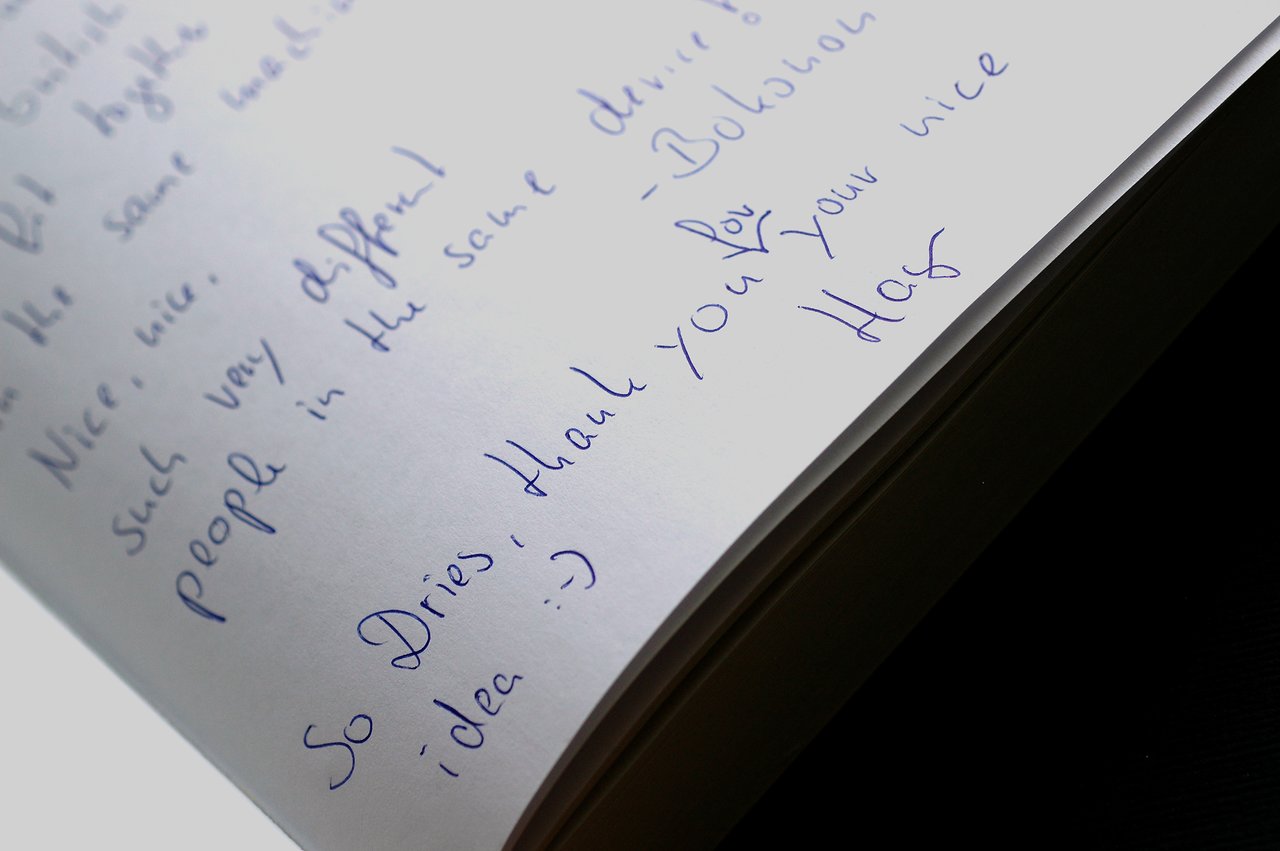 together
in the same
Nice, nice.
such very different
people in the same device!
- Bokonon
So Dries, thank you for your nice
idea :-)